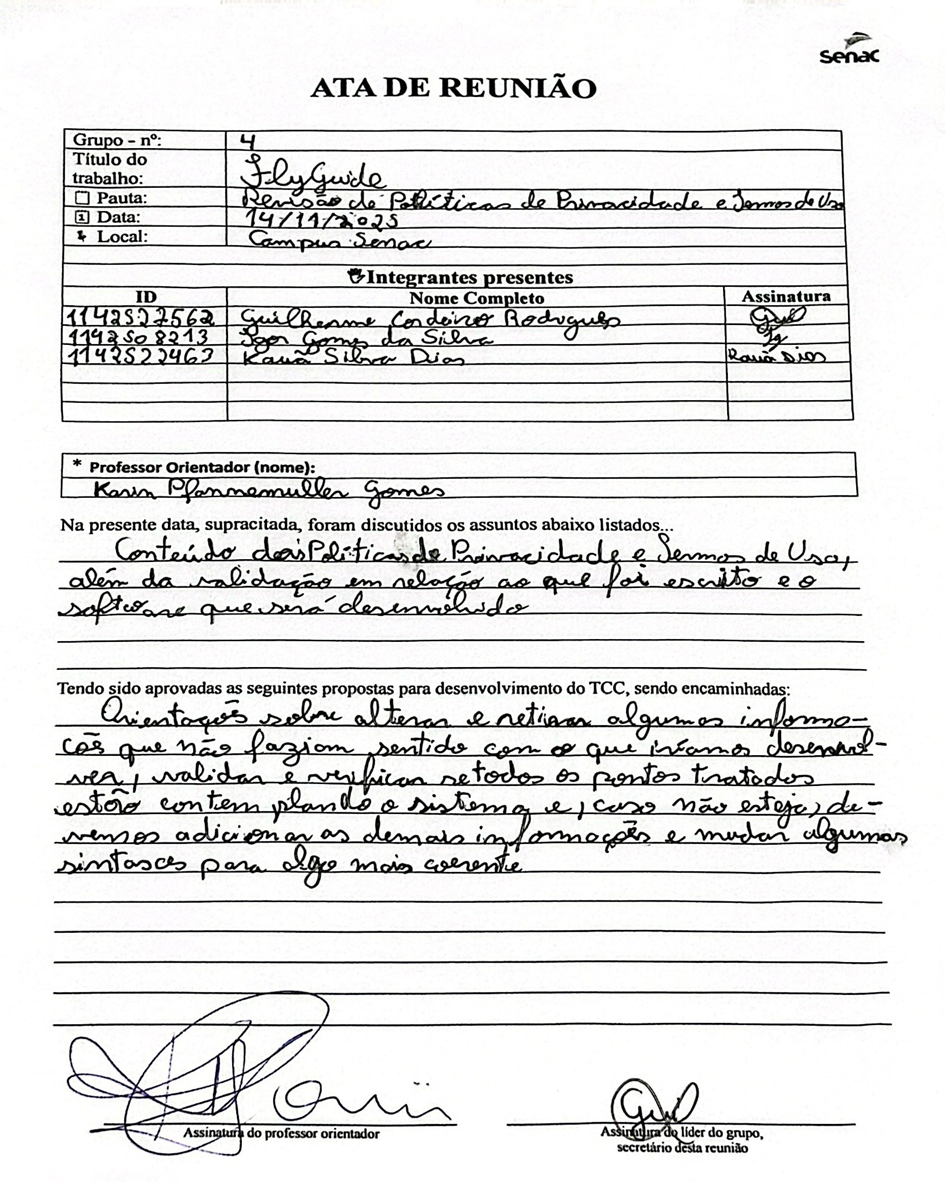 Senac
ATA DE REUNIÃO
Grupo – nº: 4
Título do trabalho: FlyGuide
Pauta: Revisão de Políticas de Privacidade e Termos de Uso
Data: 14/11/2025
Local: Campus Senac
Integrantes presentes
ID Nome Completo Assinatura
1142527562 Guilherme Cordeiro Rodrigues Gui
1142508213 Igor Gomes da Silva Ig
1142522463 Kauã Silva Dias Kauã Dias
* Professor Orientador (nome):
Karin Pfannemuller Gomes
Na presente data, supracitada, foram discutidos os assuntos abaixo listados...
Conteúdo das Políticas de Privacidade e Termos de Uso,
além da validação em relação ao que foi escrito e o
software que será desenvolvido
Tendo sido aprovadas as seguintes propostas para desenvolvimento do TCC, sendo encaminhadas:
Orientações sobre alterar e retirar algumas informa-
ções que não faziam sentido com o que iríamos desenvol-
ver, validar e verificar se todos os pontos tratados
estão contemplando o sistema e, caso não esteja, de-
vemos adicionar as demais informações e mudar algumas
sintasces para algo mais coerente
Assinatura do professor orientador
Assinatura do líder do grupo,
secretário desta reunião